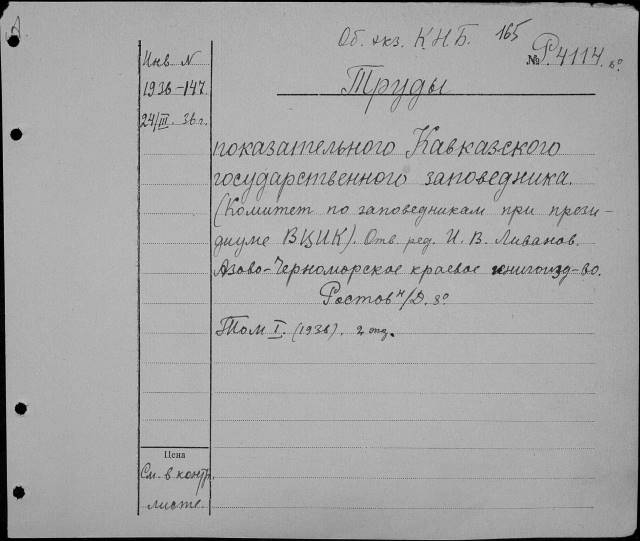 Об. экз. К.Н.Б. 165
№ Р.4114. 8°.
Инв N
1936-147.
24/III. 36 г.
Труды
показательного Кавказского
государственного заповедника.
(Комитет по заповедникам при прези-
диуме ВЦИК). Отв. ред. И. В. Ливанов.
Азово-Черноморское краевое книгоизд-во.
Ростов н/Д. 8°
Том I. (1936).
Цена
См. в контр.
листе.